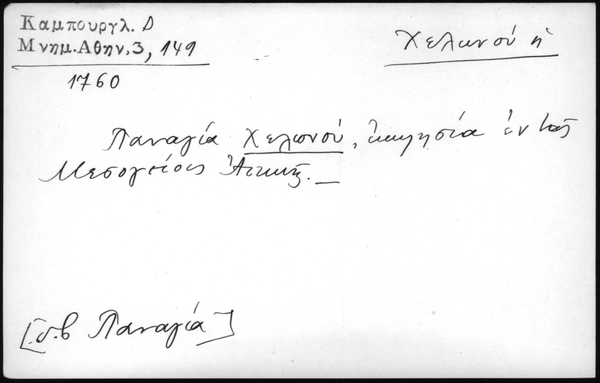 Καμπουργλ. Δ
Μνημ. Αθην. 3, 149
Χελωνού ἡ
1760
Παναγία Χελωνού, ἐκκλησία ἐν τοῖς
Μεσογείοις Ἀττικῆς.—
[σ.β Παναγία]